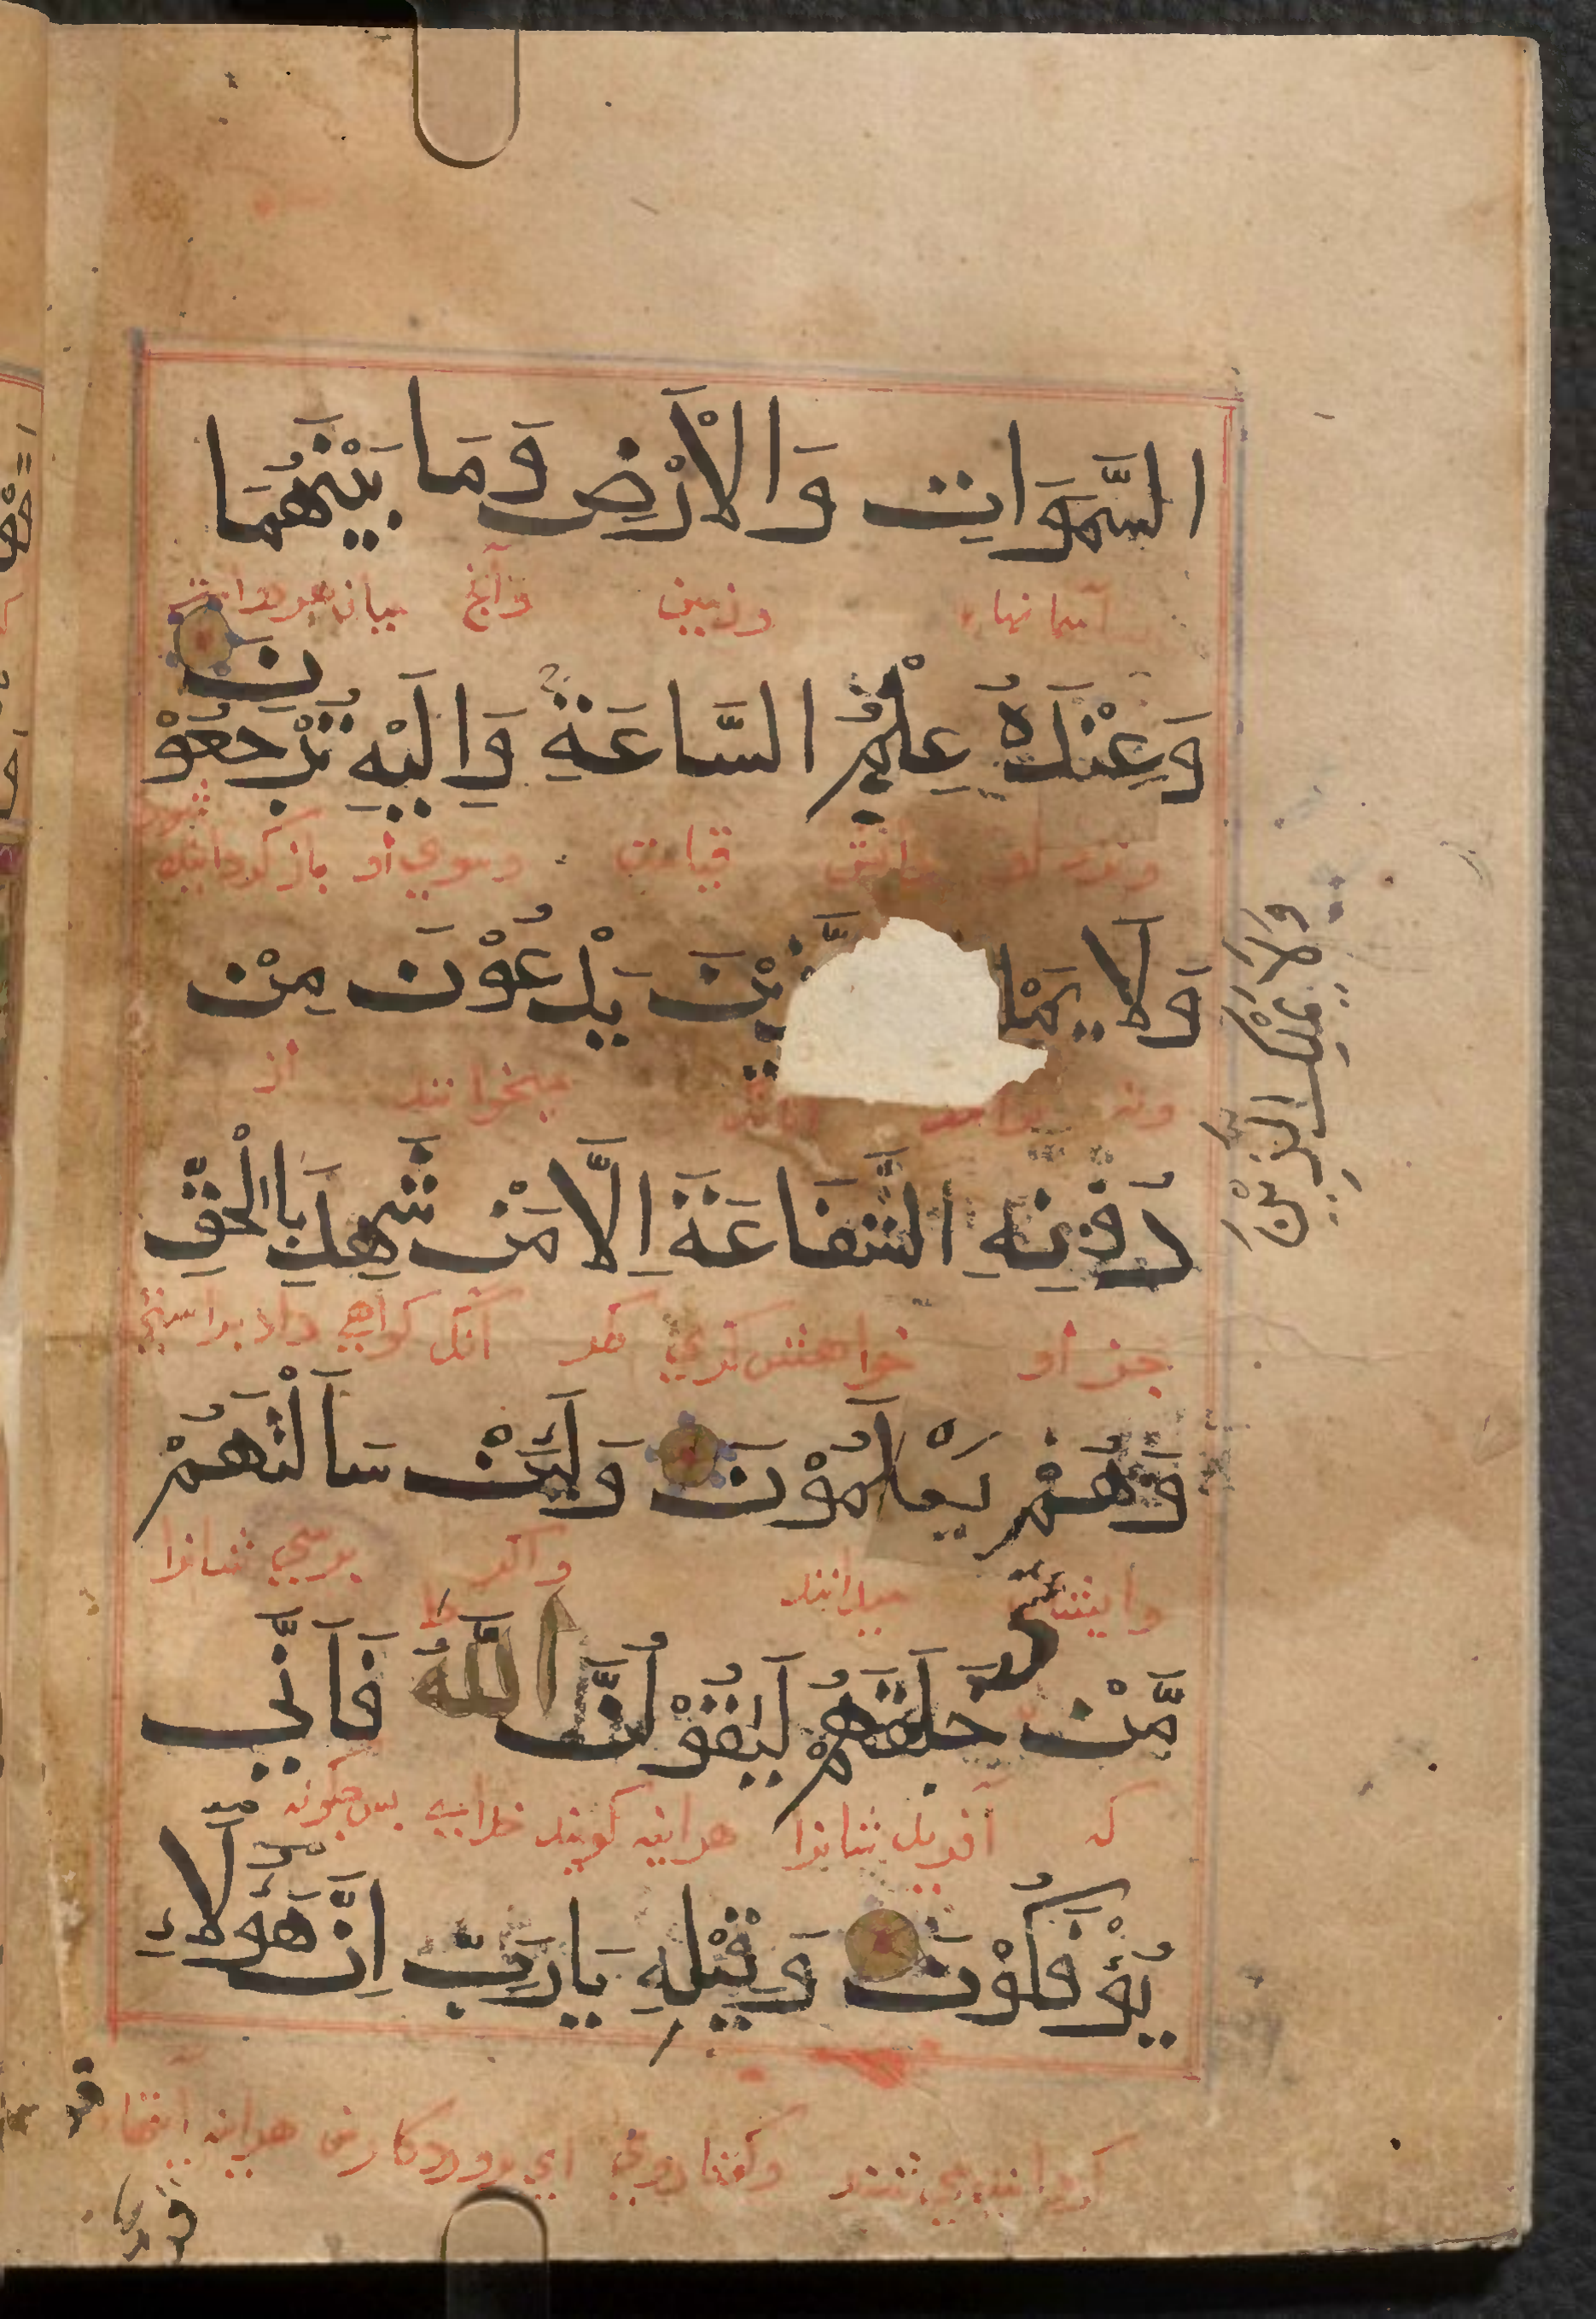 السَّمَوَاتِ وَالْاَرْضِ وَمَا بَيْنَهُمَا
آسمانها وزمین وآنچ میان هردو
وَعِنْدَهُ عِلْمُ السَّاعَةِ وَاِلَيْهِ تُرْجَعُوْنَ
قیامت وسوی او باز گردانیده شوید
وَلَا يَمْلِ ذِيْنَ يَدْعُوْنَ مِنْ
ونه میخوانند از
دُوْنِهِ الشَّفَاعَةَ اِلَّا مَنْ شَهِدَ بِالْحَقِّ
جز او خواهش کری مکر آنک کواهی داد براستی
وَهُمْ يَعْلَمُوْنَ وَلَئِنْ سَاَلْتَهُمْ
وایشان میدانند واکر بپرسی شانرا
مَّنْ خَلَقَهُمْ لَيَقُوْلُنَّ اللّٰهُ فَاَنّٰي
که آفرید شانرا هراینه کویند خدای پس چکونه
يُؤْفَكُوْنَ وَقِيْلِهِ يَارَبِّ اِنَّ هَؤُلَاءِ
وکفتار وی ای پروردکار من هراینه اینها
وَلَا يَمْلِكُ الَّذِيْنَ
قو